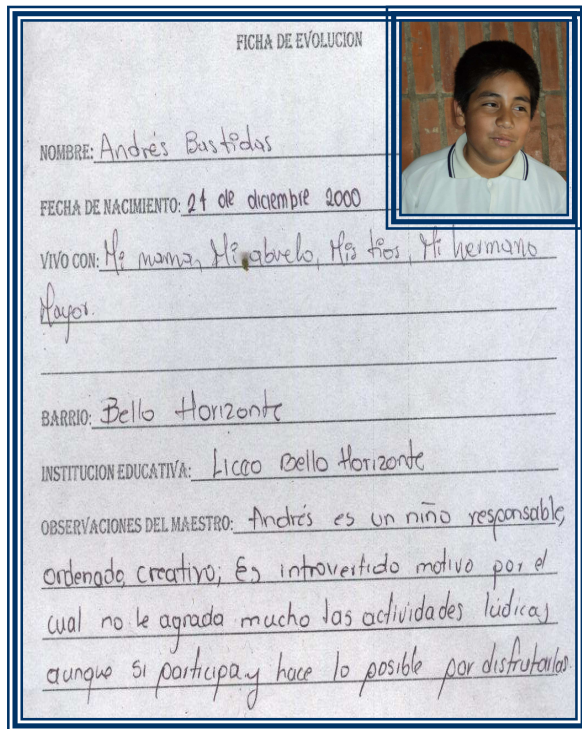 FICHA DE EVOLUCION
NOMBRE: Andrés Bastidas
FECHA DE NACIMIENTO: 21 de diciembre 2000
VIVO CON: Mi mama, Mi abuelo, Mis tios, Mi hermano
Mayor.
BARRIO: Bello Horizonte
INSTITUCION EDUCATIVA: Liceo Bello Horizonte
OBSERVACIONES DEL MAESTRO: Andrés es un niño responsable,
ordenado, creativo; Es introvertido motivo por el
cual no le agrada mucho las actividades lúdicas
aunque si participa y hace lo posible por disfrutarlas.